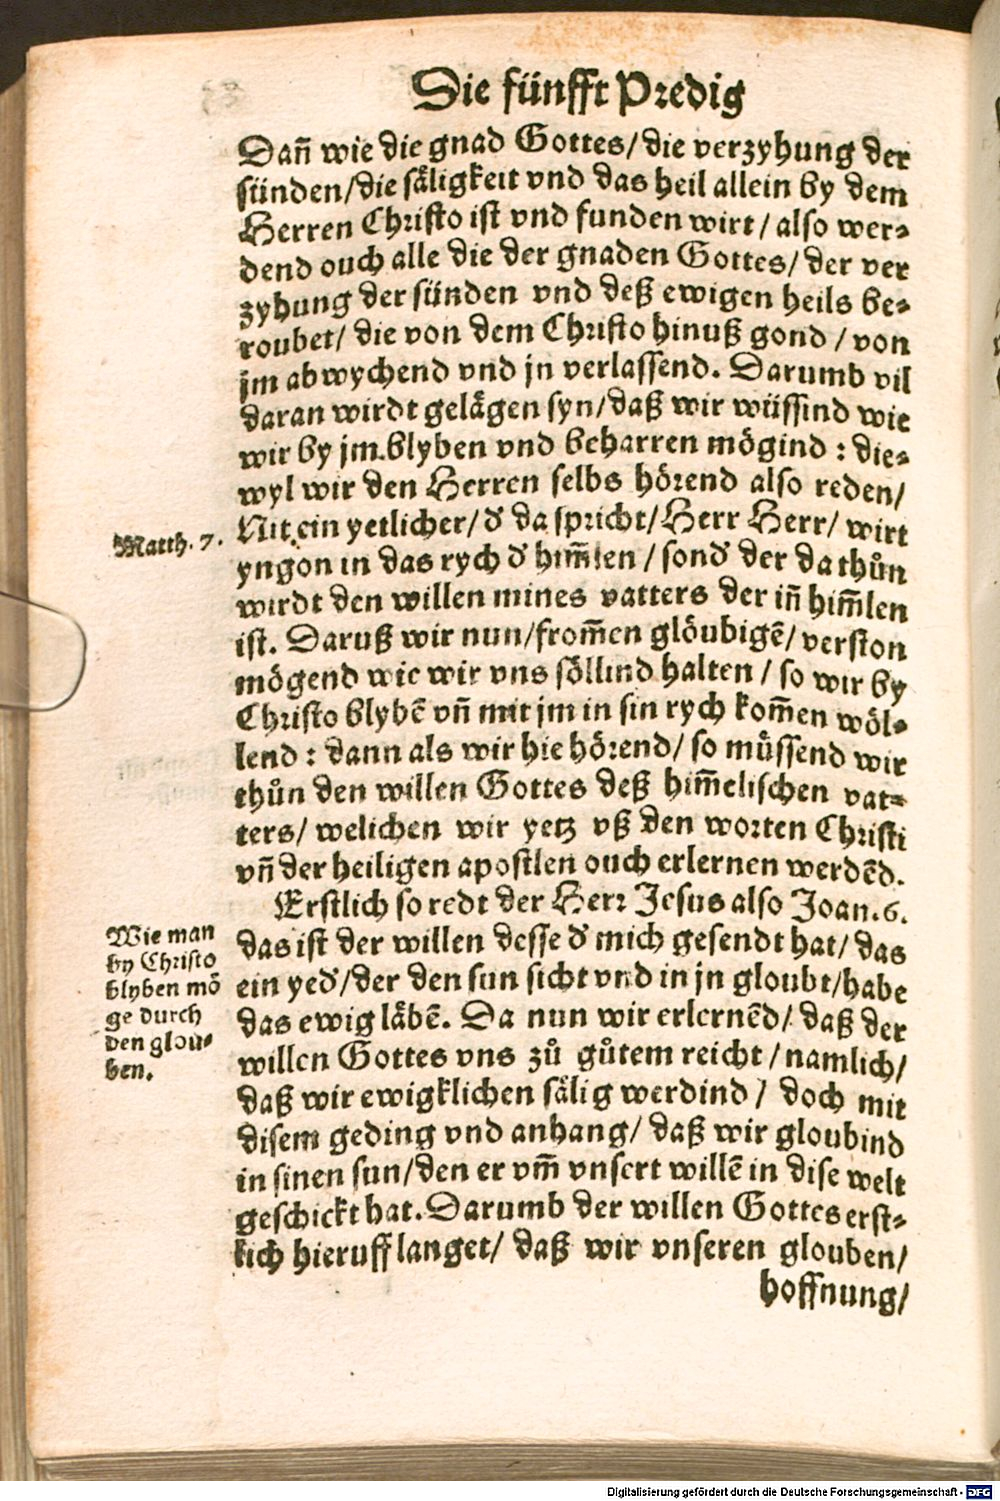 Die fünfft Predig
Dañ wie die gnad Gottes/ die verzyhung der
sünden/ die säligkeit vnd das heil allein by dem
Herren Christo ist vnd funden wirt/ also wer⸗
dend ouch alle die der gnaden Gottes/ der ver
zyhung der sünden vnd deß ewigen heils be⸗
roubet/ die von dem Christo hinuß gond/ von
jm abwychend vnd jn verlassend. Darumb vil
daran wirdt gelägen syn/ daß wir wüssind wie
wir by jm blyben vnd beharren mögind: die⸗
wyl wir den Herren selbs hörend also reden/
Matth. 7.
Nit ein yetlicher/ d' da spricht/ Herr Herr/ wirt
yngon in das rych d' him̄len/ sond' der da thůn
wirdt den willen mines vatters der iñ him̄len
ist. Daruß wir nun/ from̄en glöubigē/ verston
mögend wie wir vns söllind halten/ so wir by
Christo blybē vñ mit jm in sin rych kom̄en wöl⸗
lend: dann als wir hie hörend/ so müssend wir
thůn den willen Gottes deß him̄elischen vat⸗
ters/ welichen wir yetz vß den worten Christi
vñ der heiligen apostlen ouch erlernen werdēd.
Erstlich so redt der Herr Jesus also Joan. 6.
Wie man
by Christo
blyben mö
ge durch
den glou⸗
ben.
das ist der willen desse d' mich gesendt hat/ das
ein yed'/ der den sun sicht vnd in jn gloubt/ habe
das ewig läbē. Da nun wir erlernēd/ daß der
willen Gottes vns zů gůtem reicht/ namlich/
daß wir ewigklichen sälig werdind/ doch mit
disem geding vnd anhang/ daß wir gloubind
in sinen sun/ den er vm̄ vnsert willē in dise welt
geschickt hat. Darumb der willen Gottes erst⸗
lich hieruff langet/ daß wir vnseren glouben/
hoffnung/
Digitalisierung gefördert durch die Deutsche Forschungsgemeinschaft - DFG